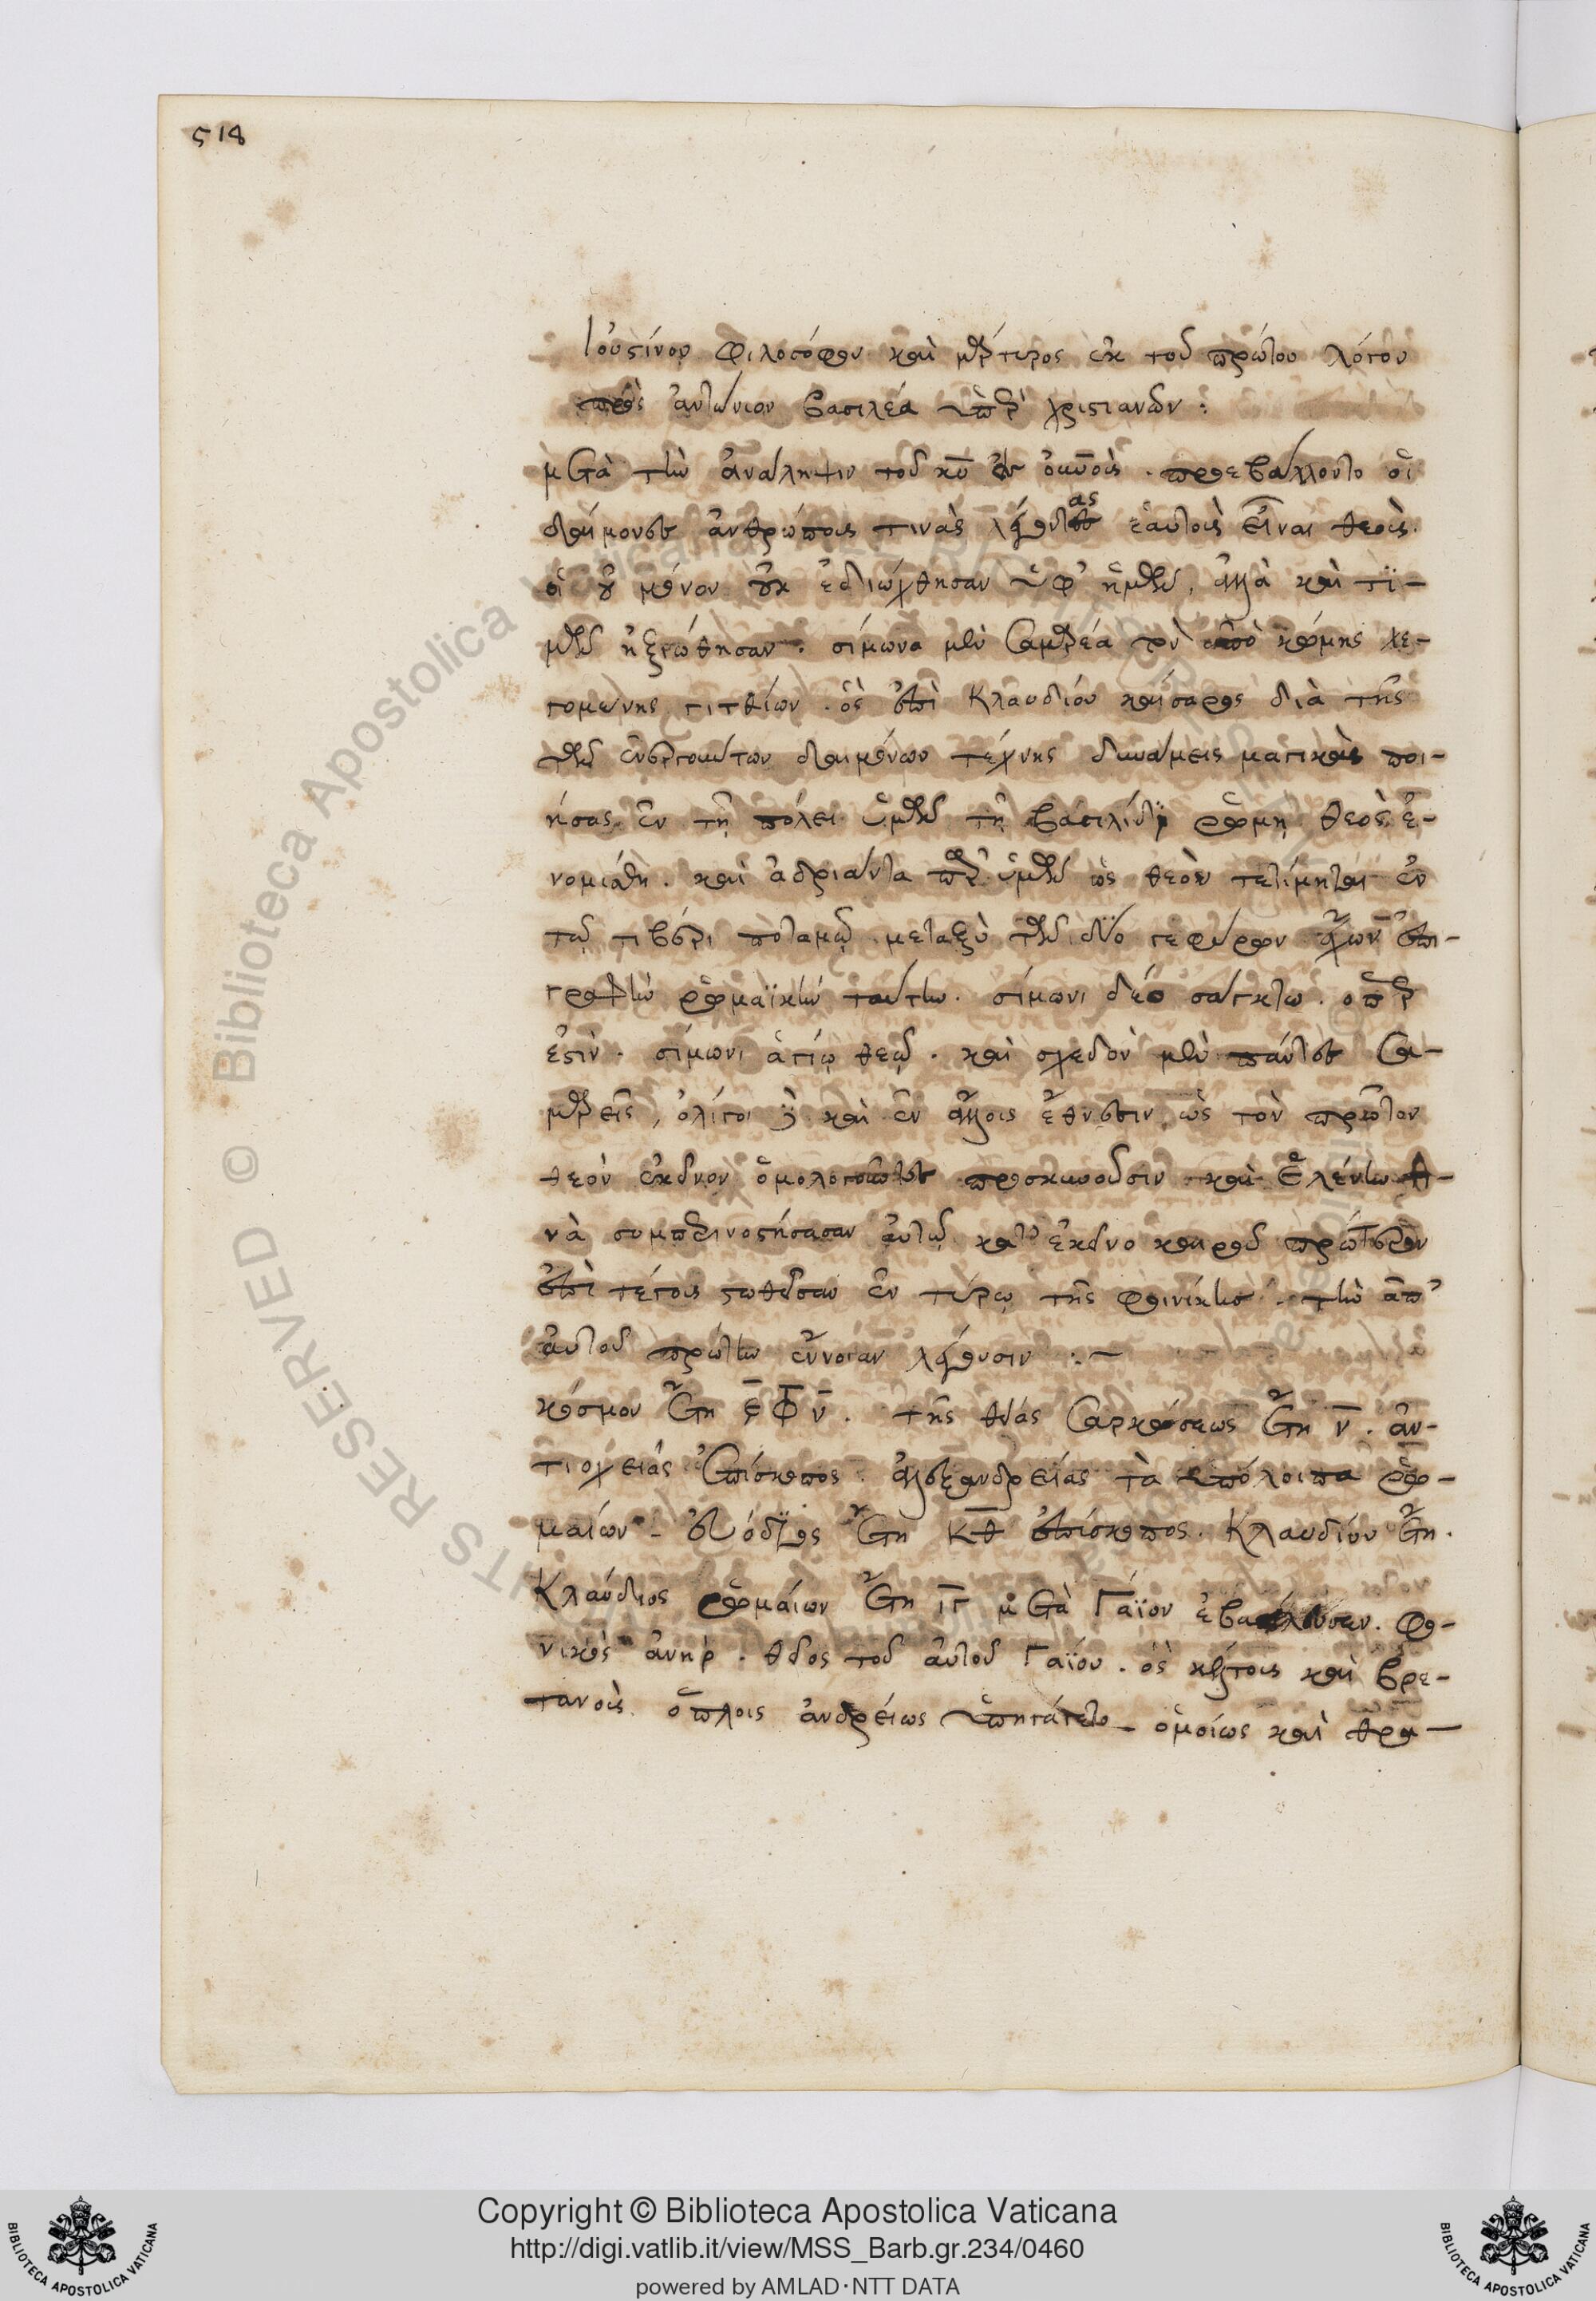 518
Ἰουστίνου φιλοσόφου καὶ μάρτυρος ἐκ τοῦ πρώτου λόγου
πρὸς ἀντώνιον βασιλέα ὑπὲρ χριστιανῶν :
μετὰ τὴν ἀνάληψιν τοῦ κυ̅ ἐν οὐνοῖς . προεβάλλοντο οἱ
δαίμονες ἀνθρώπους τινὰς λέγοντας ἑαυτοὺς εἶναι θεούς.
οἳ οὐ μόνον οὐκ ἐδιώχθησαν ὑφ' ἡμῶν, ἀλλὰ καὶ τι-
μῶν ἠξιώθησαν . σίμωνα μὲν σαμαρέα τὸν ἀπὸ κώμης λε-
γομένης γιτθίων . ὃς ἐπὶ Κλαυδίου καίσαρος διὰ τῆς
τῶν ἐνεργούντων δαιμόνων τέχνης δυνάμεις μαγικὰς ποι-
ήσας ἐν τῇ πόλει ὑμῶν τῇ βασιλίδι ῥώμῃ θεὸς ἐ-
νομίσθη . καὶ ἀδριάντα παρ' ὑμῶν ὡς θεὸς τετίμηται ἐν
τῷ τίβερι ποταμῷ μεταξὺ τῶν δύο γεφύρων ἔχων ἐπι-
γραφὴν ῥωμαϊκὴν ταύτην . σίμωνι δέο σάγκτω . ὅπερ
ἐστίν . σίμωνι ἁγίῳ θεῷ . καὶ σχεδὸν μὲν πάντες σα-
μαρεῖς, ὀλίγοι δὲ καὶ ἐν ἄλλοις ἔθνεσιν, ὡς τὸν πρῶτον
θεὸν ἐκεῖνον ὁμολογοῦντες προσκυνοῦσιν . καὶ Ἑλένην τι-
νὰ συμπερινοστήσασαν αὐτῷ κατ' ἐκεῖνο καιροῦ πρώτερον
ἐπὶ τέγους σταθεῖσαν ἐν τύρῳ τῆς φοινίκης . τὴν ἀπ'
αὐτοῦ πρώτην ἔννοιαν λέγουσιν :-
κόσμου ἔτη ε̅ φ̅ ν̅ . τῆς θείας σαρκώσεως ἔτη ν̅ . ἀν-
τιοχείας ἐπίσκοπος . ἀλεξανδρείας τὰ ὑπόλοιπα ῥω-
μαίων - εὐόδιος ἔτη κθ̅ ἐπίσκοπος . Κλαυδίου ἔτη .
Κλαύδιος ῥωμαίων ἔτη ιγ̅ μετὰ Γάϊον ἐβασίλευσεν . φο-
νικὸς ἀνήρ . θεῖος τοῦ αὐτοῦ Γαΐου . ὃς κέλτοις καὶ βρε-
τανοῖς ὅπλοις ἀνδρείως ὑπηγάγετο - ὁμοίως καὶ θρα-
Copyright © Biblioteca Apostolica Vaticana
http://digi.vatlib.it/view/MSS_Barb.gr.234/0460
powered by AMLAD·NTT DATA